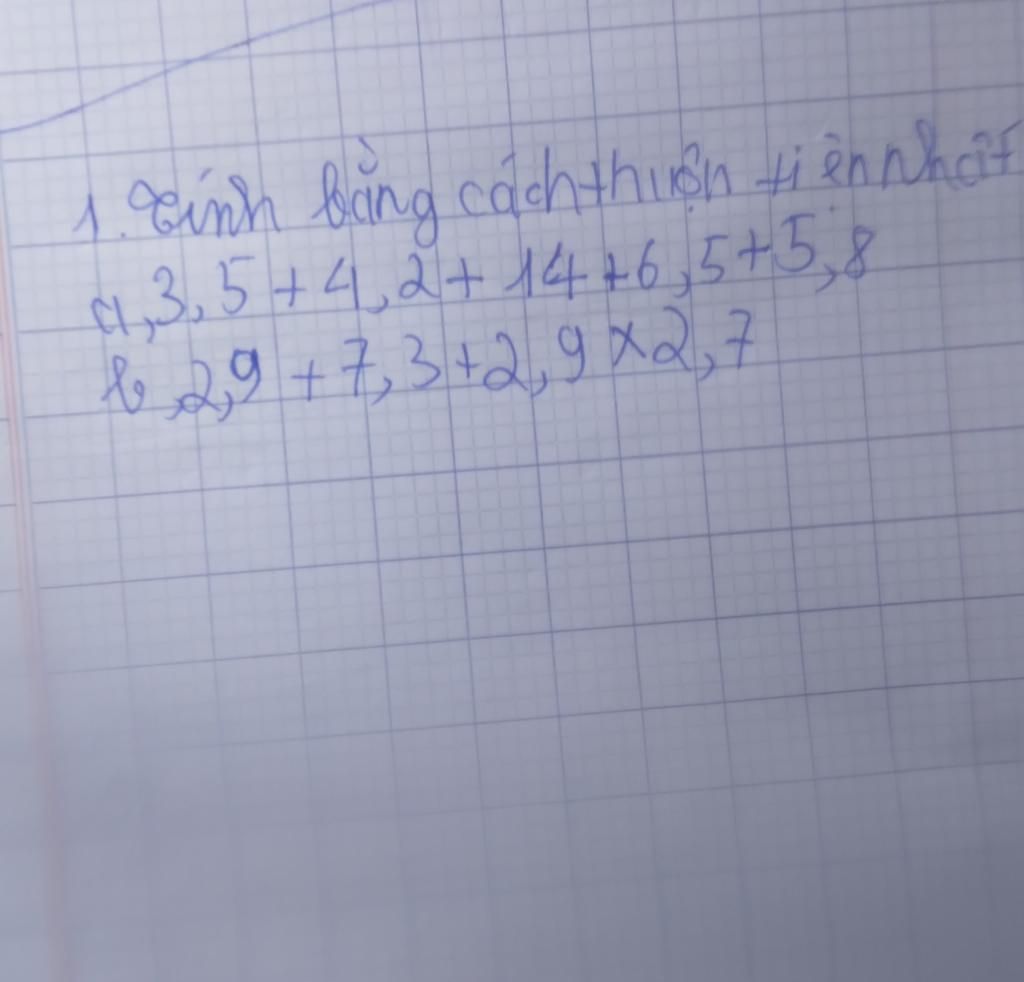 1. Tính bằng cách thuận tiện nhất
a, 3,5 + 4,2 + 14 + 6,5 + 5,8
b, 2,9 + 7,3 + 2,9 × 2,7